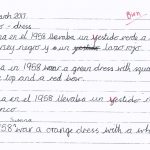 Bien -
March 2017
- dress
en el 1958 llevaba un vestido verde a
negro y un lazo rojo.
in 1958 wear a green dress with squa
top and a red bow.
a en el 1958 llevaba un vestido
nco.
1958 wear a orange dress with a wh